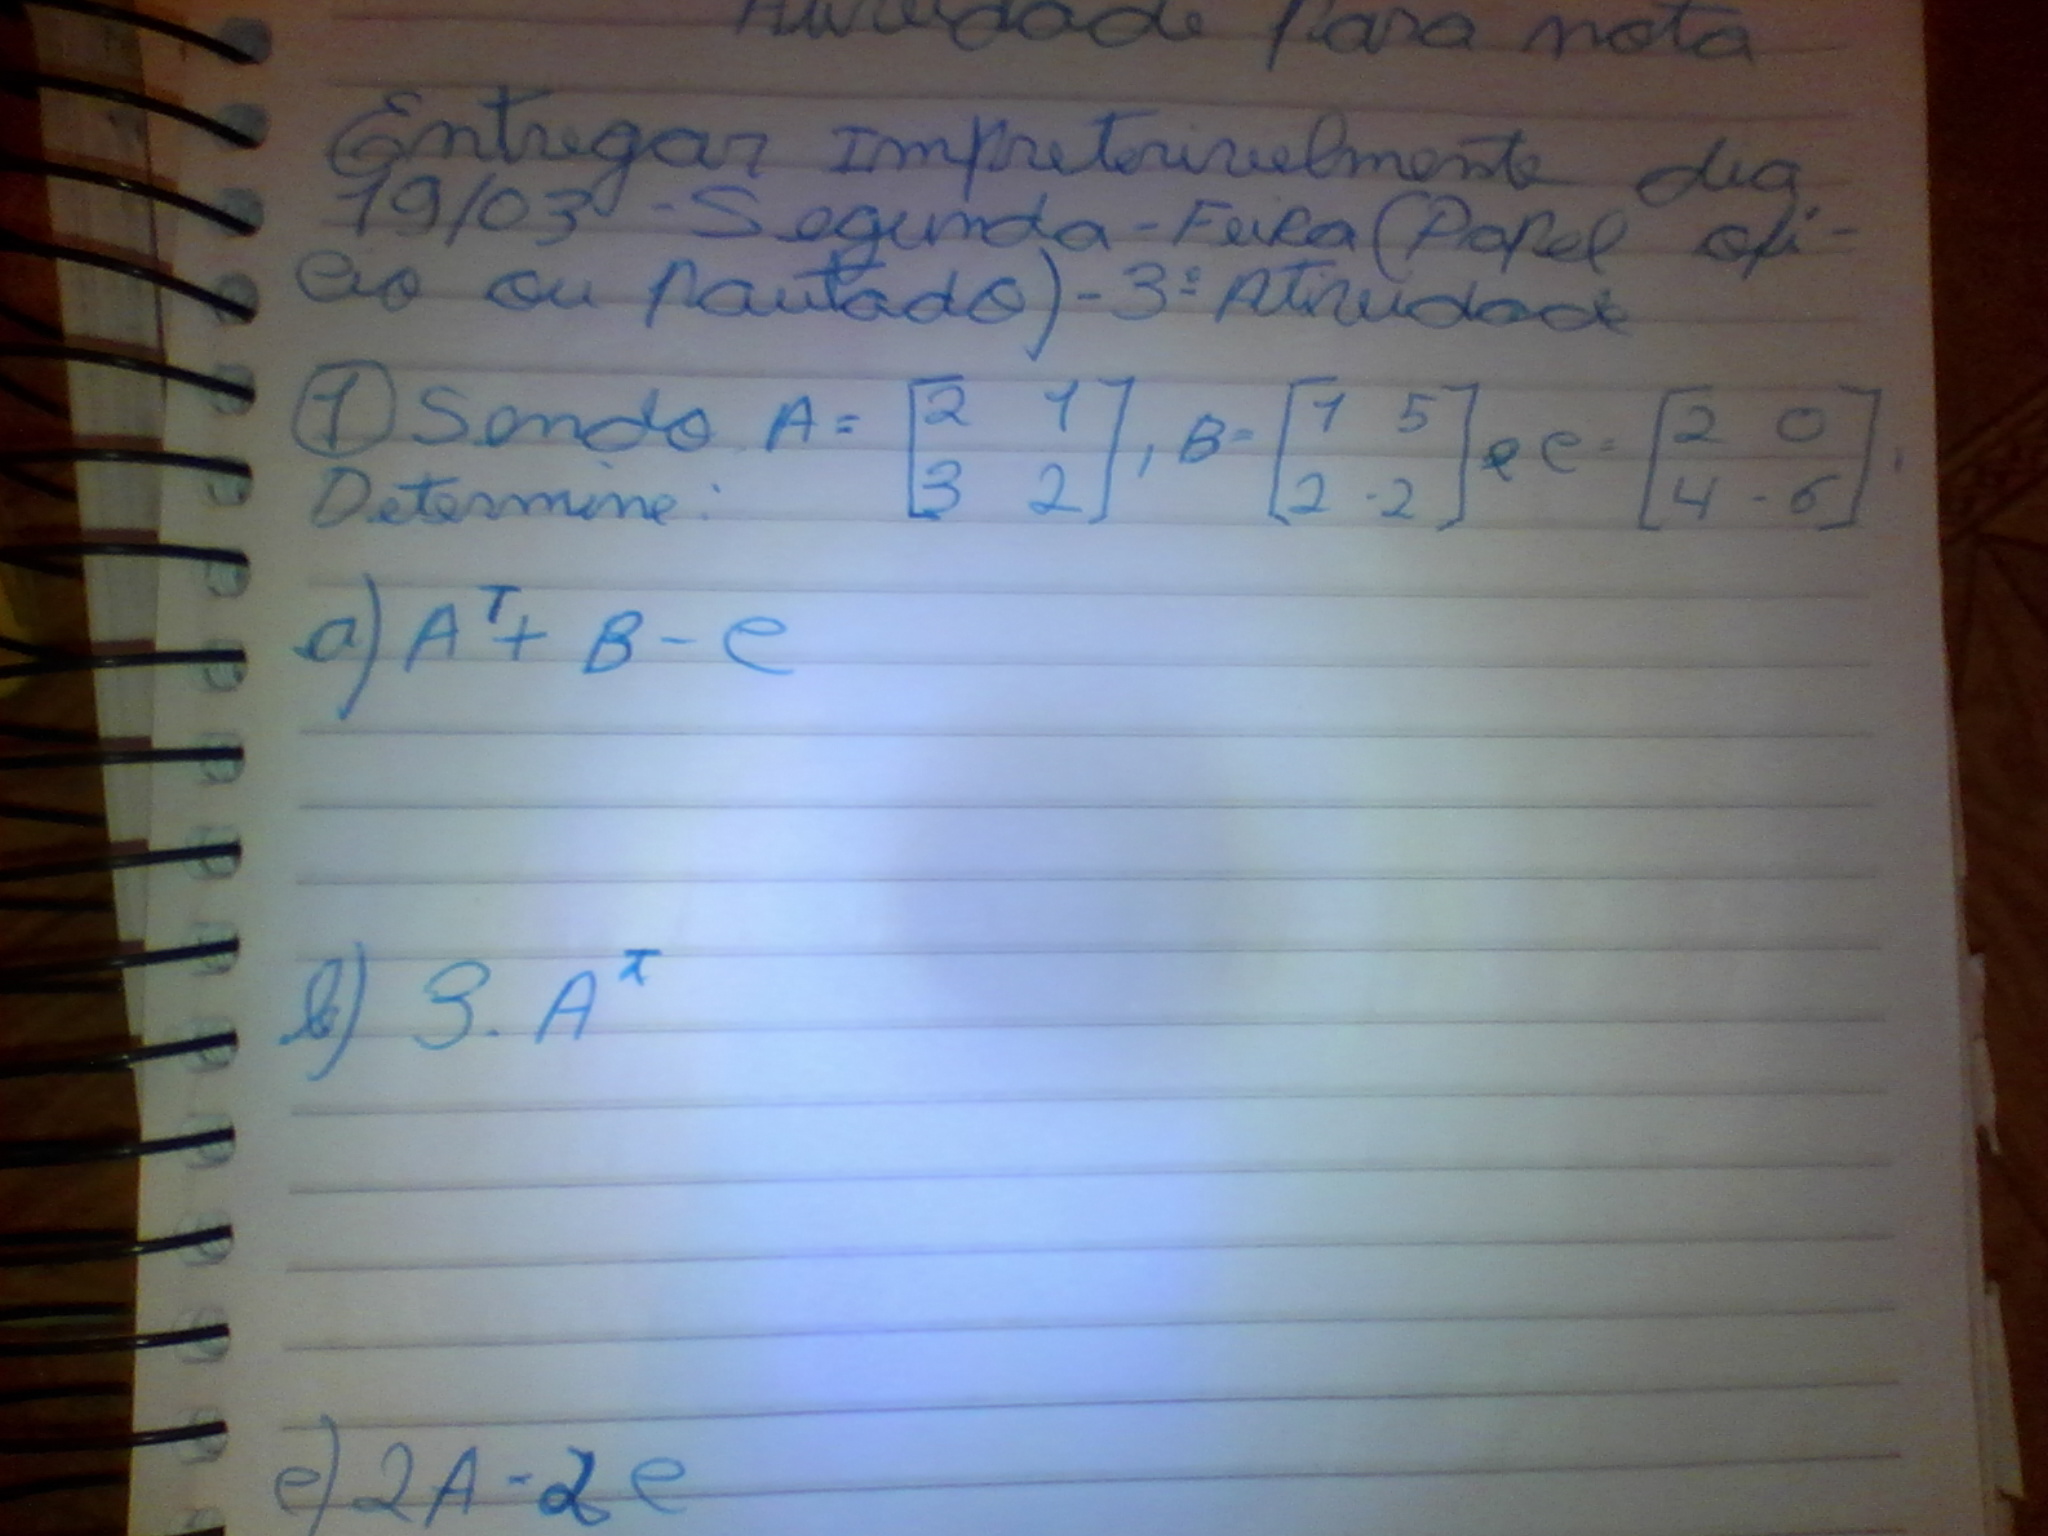 Atividade para nota
Entregar Impreterivelmente dia
19/03 - Segunda-Feira (Papel ofí-
cio ou pautado) - 3ª Atividade
① Sendo A = [2 1], B = [1 5] e C = [2 0].
Determine: [3 2] [2 -2] [4 -6]
a) Aᵀ + B - C
b) 3. Aᵀ
c) 2A - 2C